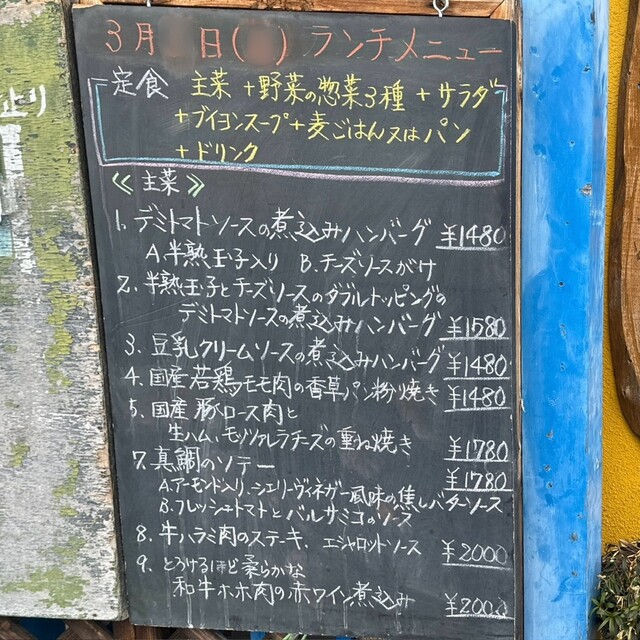 3月 日( ) ランチメニュー
定食 主菜+野菜の惣菜3種+サラダ
+ブイヨンスープ+麦ごはん又はパン
+ドリンク
≪主菜≫
1. デミトマトソースの煮込みハンバーグ ¥1480
A.半熟玉子入り B.チーズソースがけ
2. 半熟玉子とチーズソースのダブルトッピングの
デミトマトソースの煮込みハンバーグ ¥1580
3. 豆乳クリームソースの煮込みハンバーグ ¥1480
4. 国産若鶏モモ肉の香草パン粉焼き ¥1480
5. 国産豚ロース肉と
生ハム、モッツァレラチーズの重ね焼き ¥1780
7. 真鯛のソテー ¥1780
A.アーモンド入り、シェリーヴィネガー風味の焦しバターソース
B.フレッシュトマトとバルサミコのソース
8. 牛ハラミ肉のステーキ、エシャロットソース ¥2000
9. とろけるほど柔らかな
和牛ホホ肉の赤ワイン煮込み ¥2000
止り